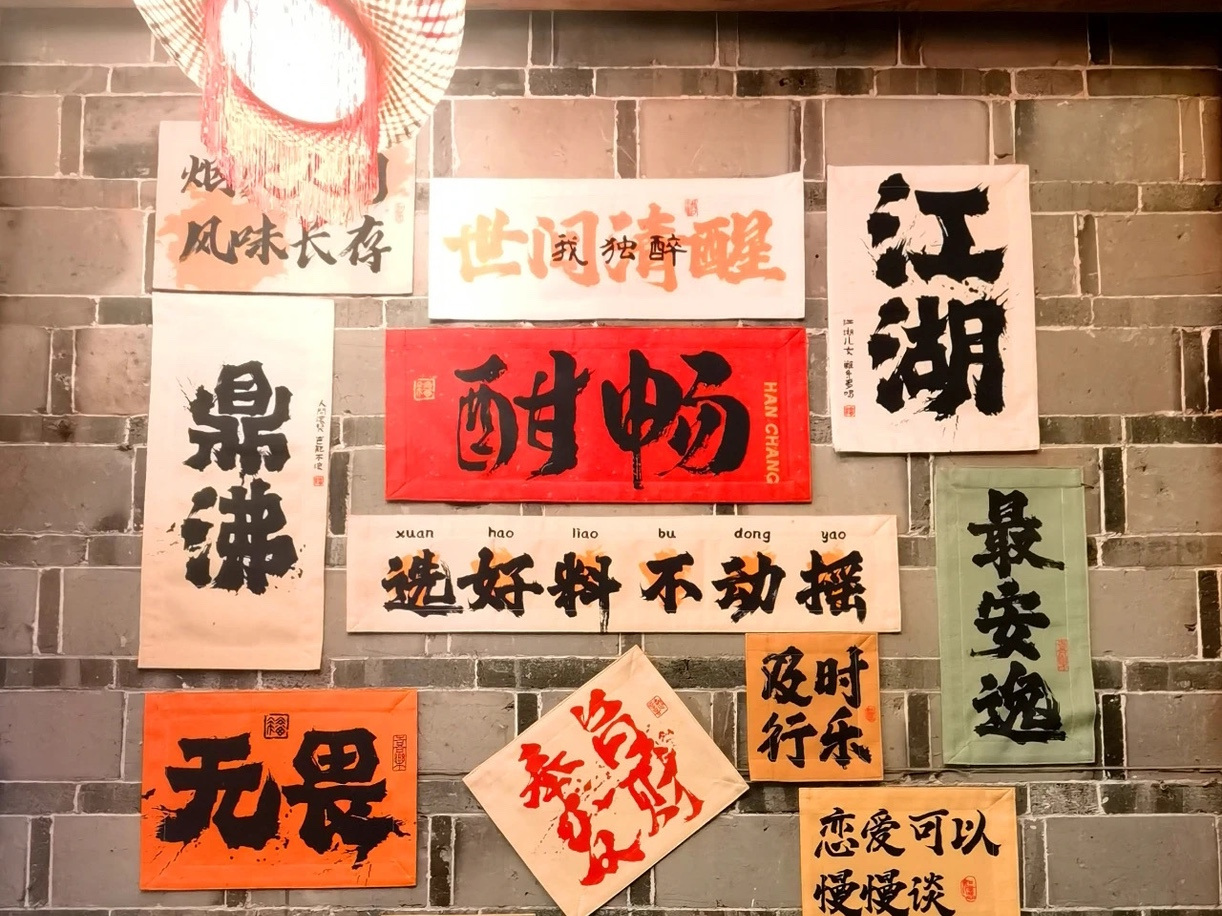 风味长存
世间清醒
我独醉
江湖
鼎沸
酣畅
HAN CHANG
xuan hao liao bu dong yao
选好料不动摇
最安逸
及时
行乐
无畏
恋爱可以
慢慢谈